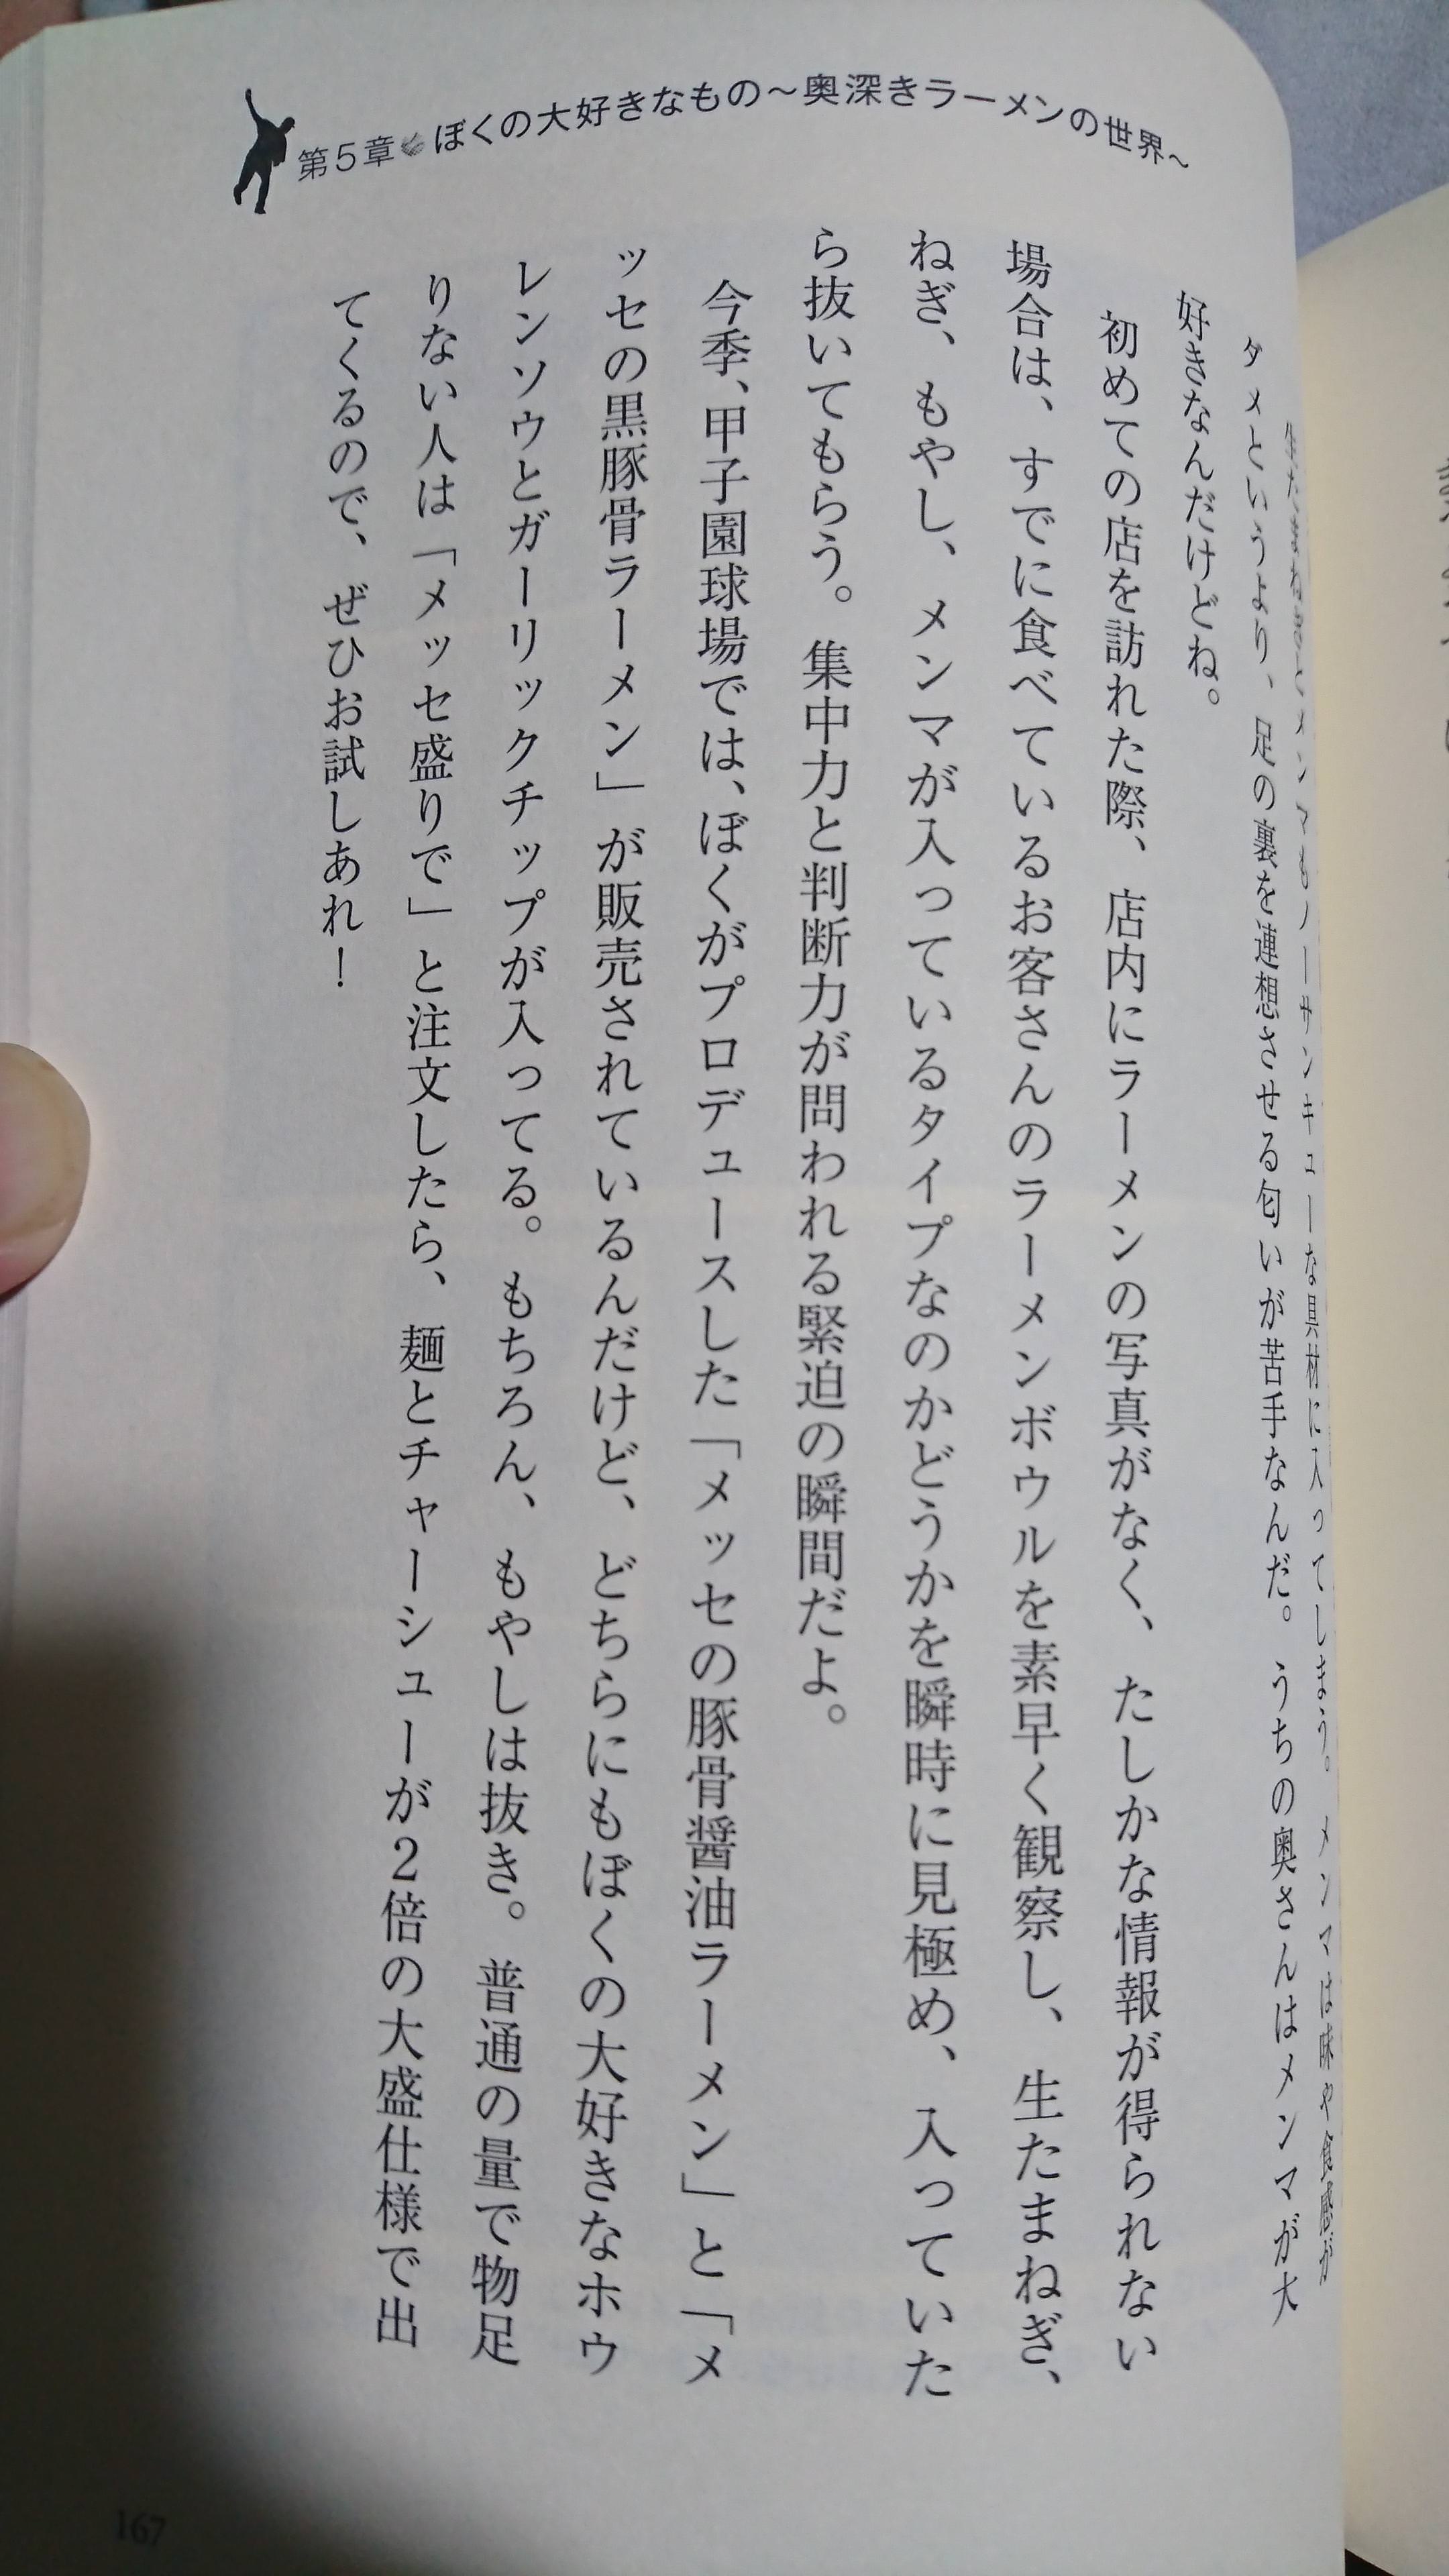 第5章 ぼくの大好きなもの～奥深きラーメンの世界～
生たまねぎとメンマもノーサンキューな具材に入ってしまう。メンマは味や食感が
ダメというより、足の裏を連想させる匂いが苦手なんだ。うちの奥さんはメンマが大
好きなんだけどね。
初めての店を訪れた際、店内にラーメンの写真がなく、たしかな情報が得られない
場合は、すでに食べているお客さんのラーメンボウルを素早く観察し、生たまねぎ、
ねぎ、もやし、メンマが入っているタイプなのかどうかを瞬時に見極め、入っていた
ら抜いてもらう。集中力と判断力が問われる緊迫の瞬間だよ。
今季、甲子園球場では、ぼくがプロデュースした「メッセの豚骨醤油ラーメン」と「メ
ッセの黒豚骨ラーメン」が販売されているんだけど、どちらにもぼくの大好きなホウ
レンソウとガーリックチップが入ってる。もちろん、もやしは抜き。普通の量で物足
りない人は「メッセ盛りで」と注文したら、麺とチャーシューが2倍の大盛仕様で出
てくるので、ぜひお試しあれ！
167